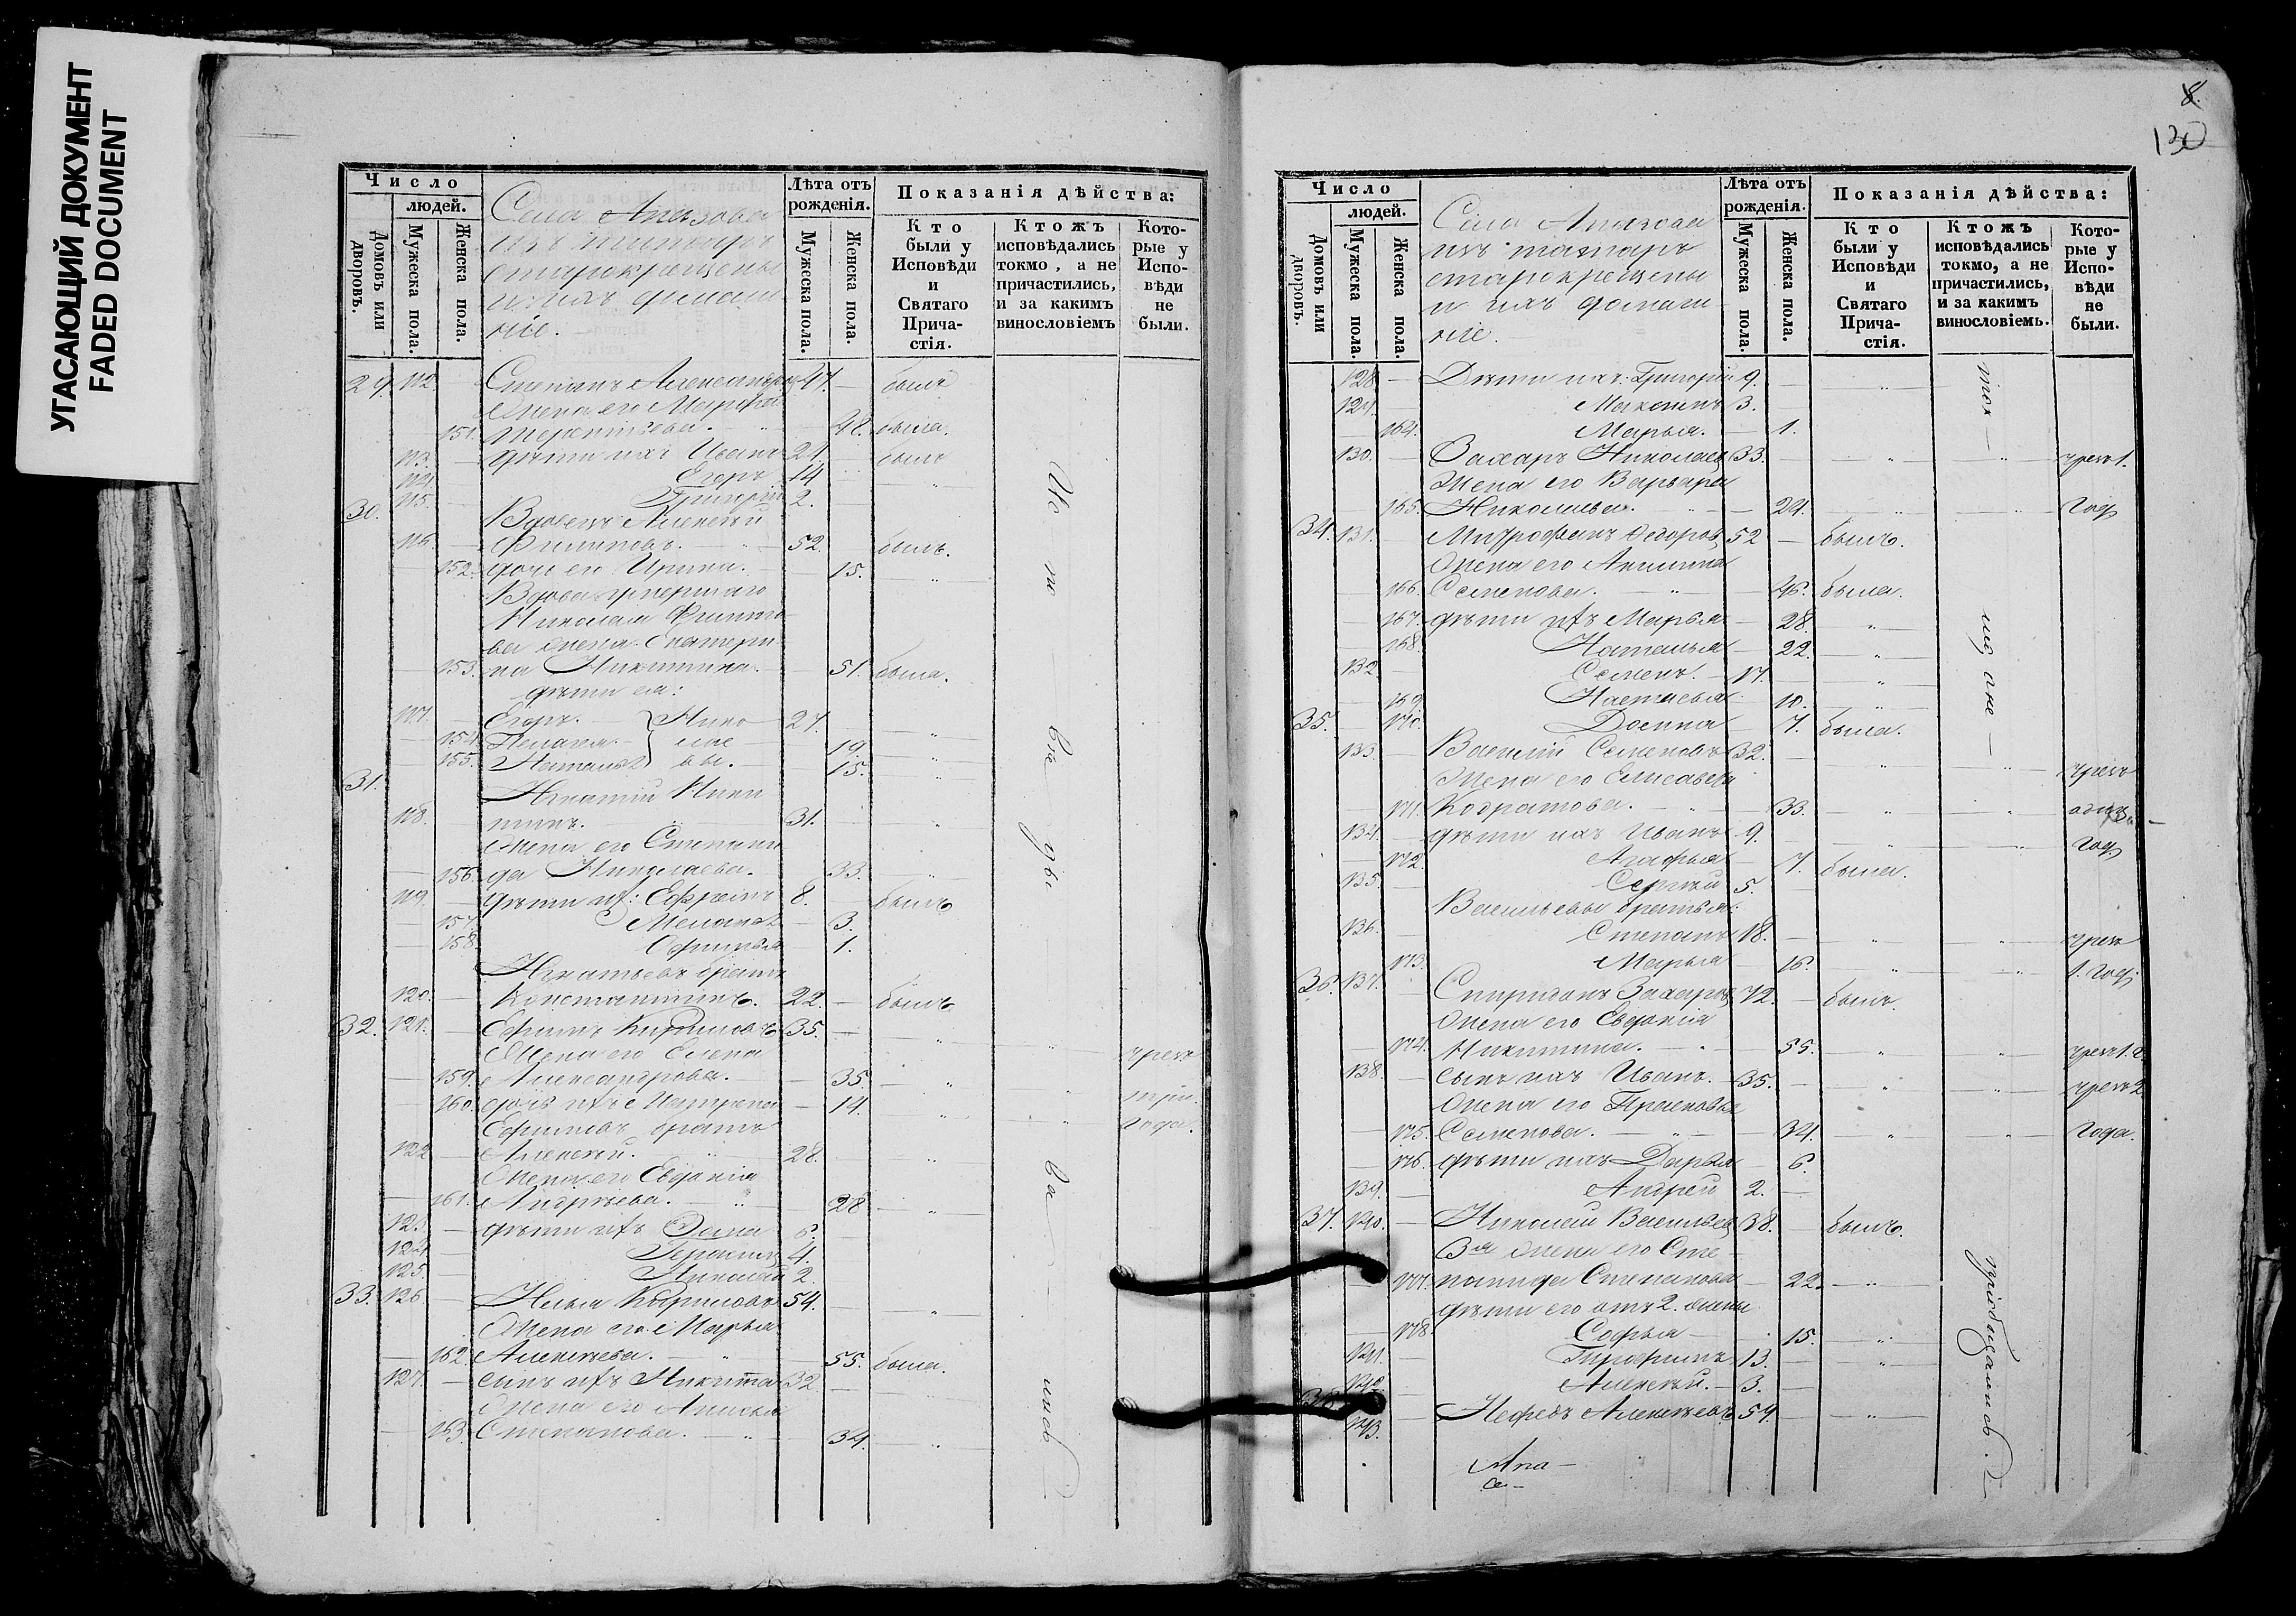 УГАСАЮЩИЙ ДОКУМЕНТ
FADED DOCUMENT
Число
людей.
Домовъ или дворовъ.
Мужеска пола.
Женска пола.
Села Апазова
изъ татаръ
старокрещены
и ихъ домаш-
ніе.
Лѣта отъ рожденія.
Мужеска пола.
Женска пола.
Показанія дѣйства:
Кто были у Исповѣди и Святаго Прича- стія.
Ктожъ исповѣдались токмо, а не причастились, и за какимъ винословіемъ
Кото- рые у Испо- вѣди не были.
29. 112. — Степанъ Александровъ 47. — былъ
Жена его Марфа
151. Терентьева. — „ 48. была.
113. — дѣти ихъ Иванъ 21. былъ
114. — Егоръ 14 — „
115. — Григорій 2.
30. Вдовецъ Алексѣй
116. — Филиповъ. — „ 52. былъ.
152. дочь его Ирина. — 15. „
Вдова умершаго
Николая Филипо
ва жена Екатери
153. на Никитина. — 51. была.
дѣти ея:
117. — Егоръ. } Нико 27.
154. Пелагея } лае — 19. „
155. Наталья } вы. — 15. „
31. Игнатій Ники
118. — тинъ. 31. — „
Жена его Степани
156. да Николаева. 33. „
119. — дѣти их: Ефремъ 8. — былъ
157. Меланья — 3.
158. Офимья — 1.
Игнатьевъ братъ
120. — Константинъ. 22. — былъ
32. 121. — Ефимъ Кириловъ 35. — „ „
Жена его Елена чрезъ
159. Александрова. — 35. „ „ три
160. дочь ихъ Матрена — 14. „ „ года.
Ефимовъ братъ
122 — Алексѣй. „ 28. — „
Жена его Евдокія
161. Андреева. — „ 28 — „
123. — дѣти ихъ Фома 6.
124. — Герасимъ 4.
125. — Николай 2.
33. 126. — Илья Кириловъ 54. — „
Жена его Марья
162. Алексѣева. — „ 55. была.
127. — сынъ ихъ Никита 32 —
Жена его Анисья
163. Степанова. — „ 34. — „
Ис по вѣ ды ва лись
8.
130
Число
людей.
Домовъ или дворовъ.
Мужеска пола.
Женска пола.
Села Апазова
изъ татаръ
старокрещены
и ихъ домаш-
ніе.
Лѣта отъ рожденія.
Мужеска пола.
Женска пола.
Показанія дѣйства:
Кто были у Исповѣди и Святаго Прича- стія.
Ктожъ исповѣдались токмо, а не причастились, и за какимъ винословіемъ.
Кото- рые у Испо- вѣди не были.
128. — Дѣти ихъ: Григорій 9. — „
129. — Максимъ 3. —
164. Марья. — 1.
130. — Захаръ Николаевъ 33. — „ „ чрезъ 1.
Жена его Варвара
165. Николаева. — 24. — „ „ год
34. 131. — Митрофанъ Федоровъ 52 — былъ.
Жена его Акилина
166. Семенова. — „ — 46. была.
167. дѣти ихъ Марья — 28. „
168. Наталья — 22. „
132 — Семенъ. — 17. — „
169 Настасья 10. „
35. 170. Домна — 7. была.
133. — Василій Семеновъ 32. — „ „ чрезъ
Жена его Елисавета
171. Кодратова. — „ — 33. — „ „ одинъ
134. — дѣти ихъ Иванъ 9. — „ „ год
172. Агафья — 7. была.
135. — Сергѣй 5. —
Васильевы братья:
136. — Степанъ 18. — „ „ чрезъ
173. Марья — 16. „ „ 1. год
36. 137. — Спиридонъ Захаровъ 72. — былъ.
Жена его Евдокія
174. Никитина. — „ 55. „ „ чрезъ 1. г.
138. — сынъ ихъ Иванъ. — 35. — „ „ чрезъ 2
Жена его Прасковья
175. Семенова. — „ — 34. „ „ года.
176. дѣти ихъ Дарья — 6.
139. — Андрей 2. —
37. 140. — Николай Васильевъ 38. — былъ.
3я жена его Сте-
177. панида Степанова — 22. — „
дѣти его отъ 2. жены
178. Софья — 15. — „
141. — Трофимъ 13. — „
142. — Алексѣй. — 3. —
38. 143. — Нефедъ Алексѣевъ 54. — „
ток — мо а не — пріобщались.
Апа —
се —